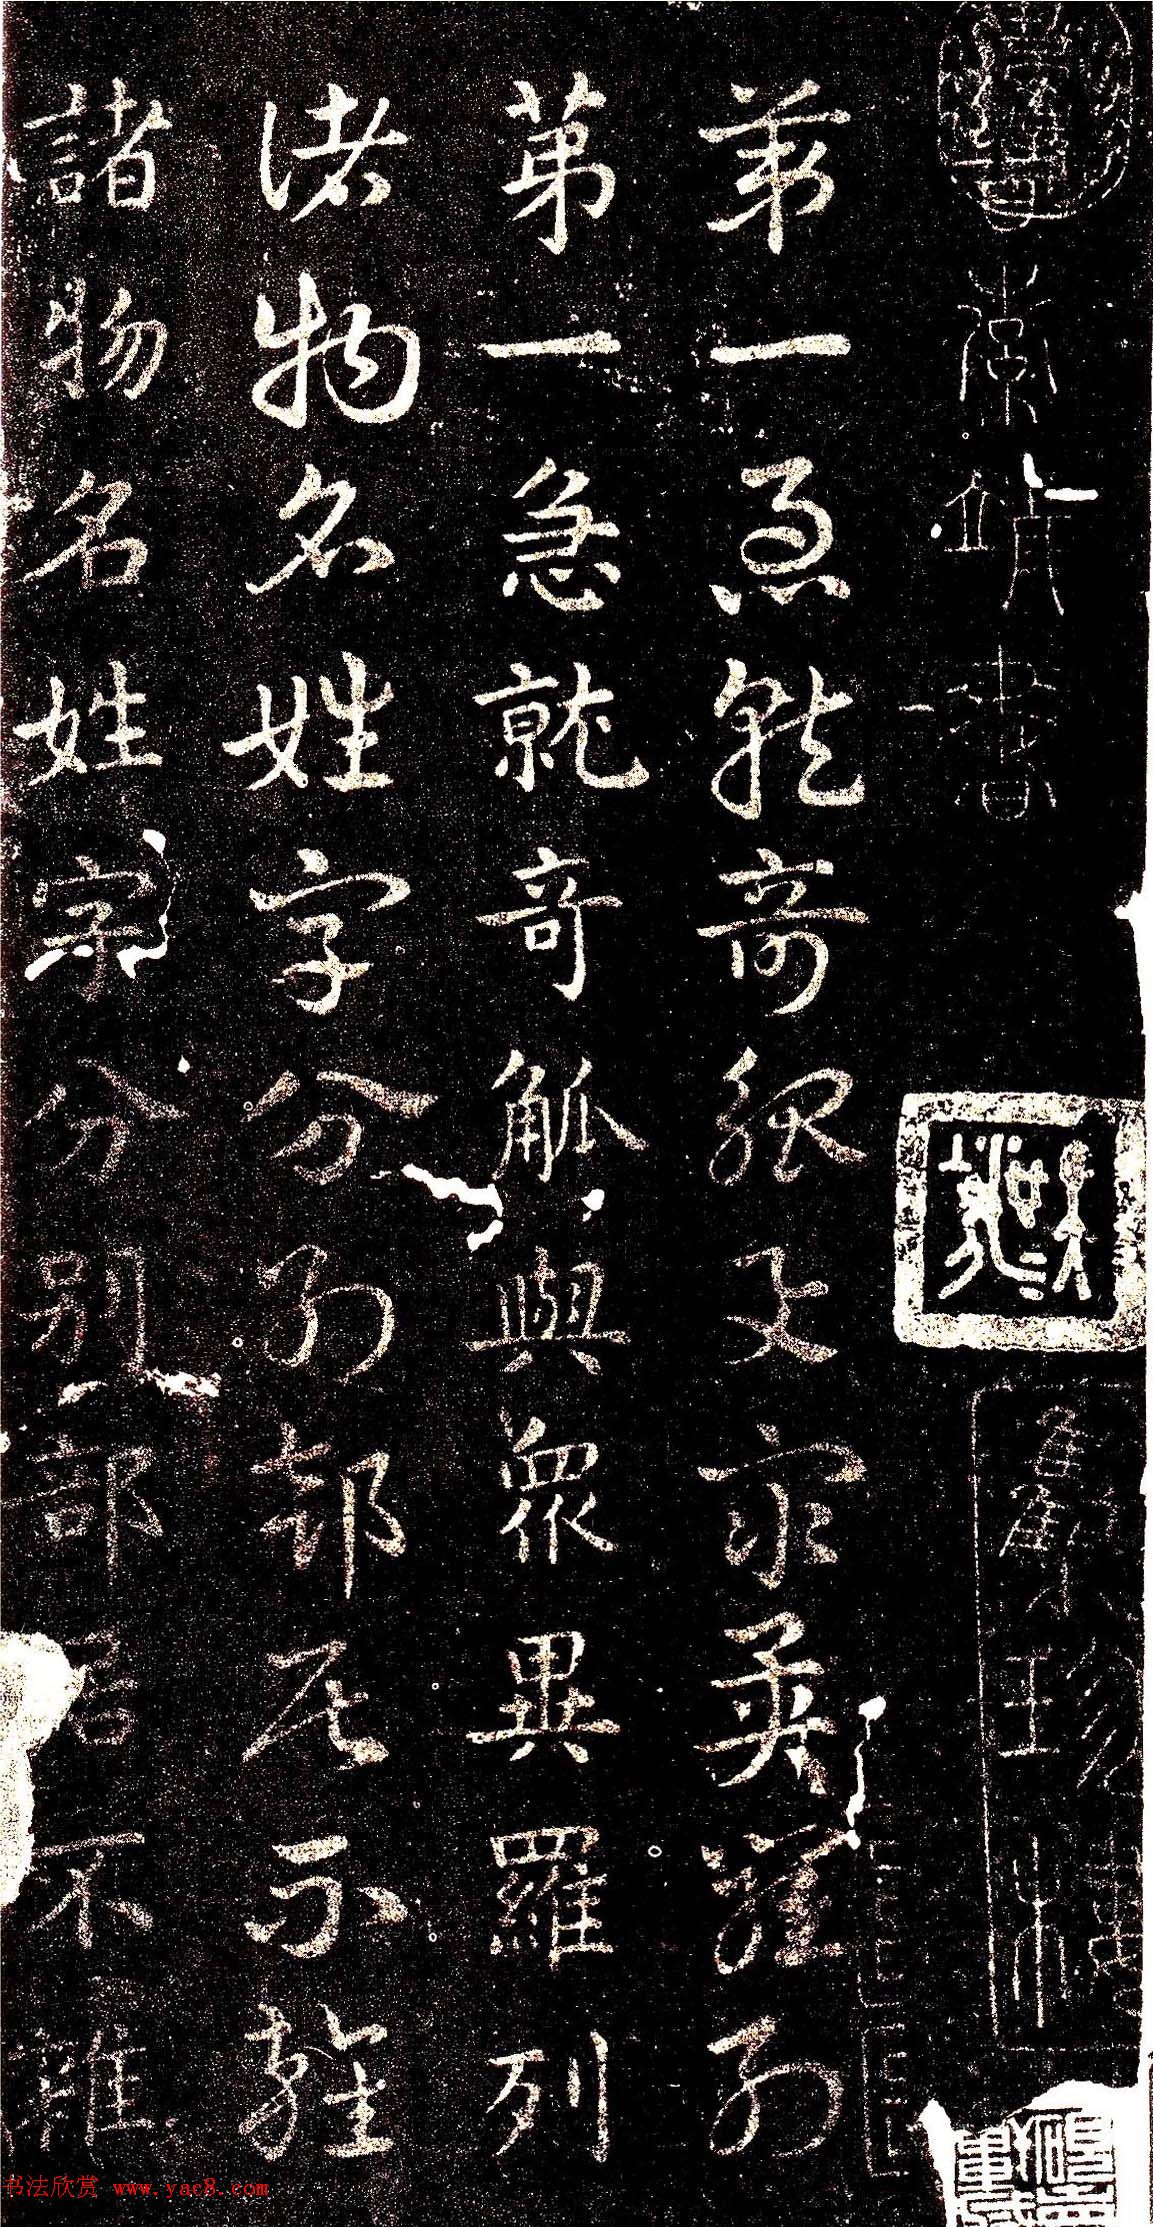 第一急就奇觚與衆異羅列
第一急就奇觚與衆異羅列
諸物名姓字分別部居不雜
諸物名姓字分別部居不雜
书法欣赏 www.yac8.com